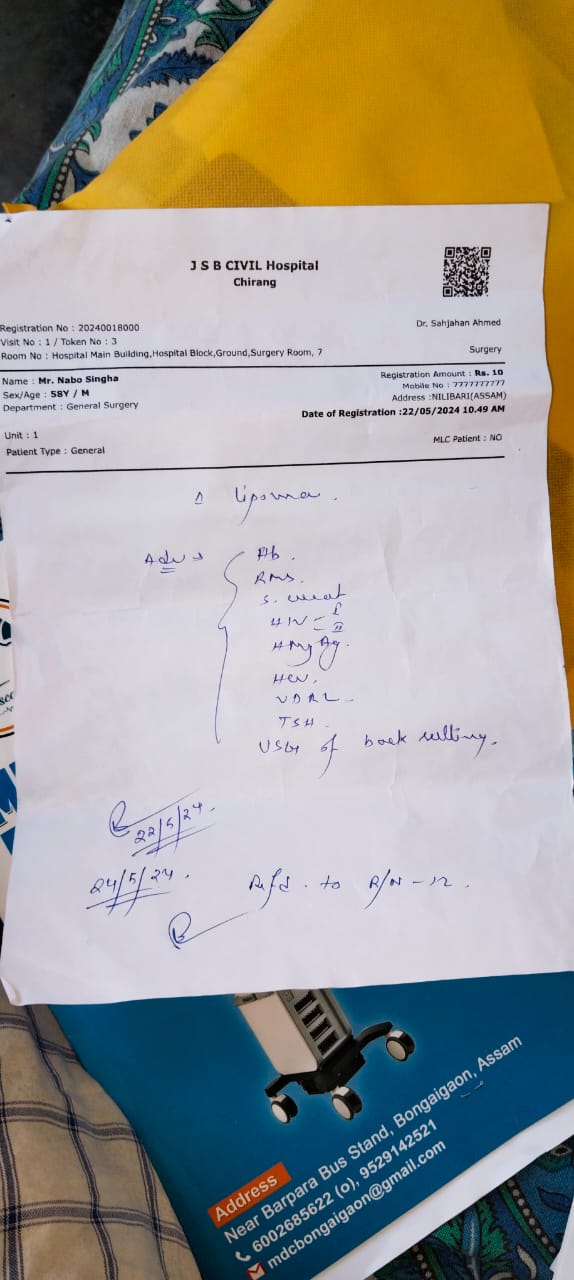 J S B CIVIL Hospital
Chirang
Registration No : 20240018000
Visit No : 1 / Token No : 3
Room No : Hospital Main Building,Hospital Block,Ground,Surgery Room, 7
Dr. Sahjahan Ahmed
Surgery
Name : Mr. Nabo Singha
Sex/Age : 58Y / M
Department : General Surgery
Registration Amount : Rs. 10
Mobile No : 7777777777
Address :NILIBARI(ASSAM)
Date of Registration :22/05/2024 10.49 AM
Unit : 1
Patient Type : General
MLC Patient : NO
Δ Lipoma.
Adv
Hb.
RBS.
S. creat
HIV - I
II
Ag.
HCV.
VDRL
TSH.
USG of back
22/5/24.
24/5/24.
Refd. to R/N-12.
Address
Near Barpara Bus Stand, Bongaigaon, Assam
6002685622 (o), 9529142521
mdcbongaigaon@gmail.com